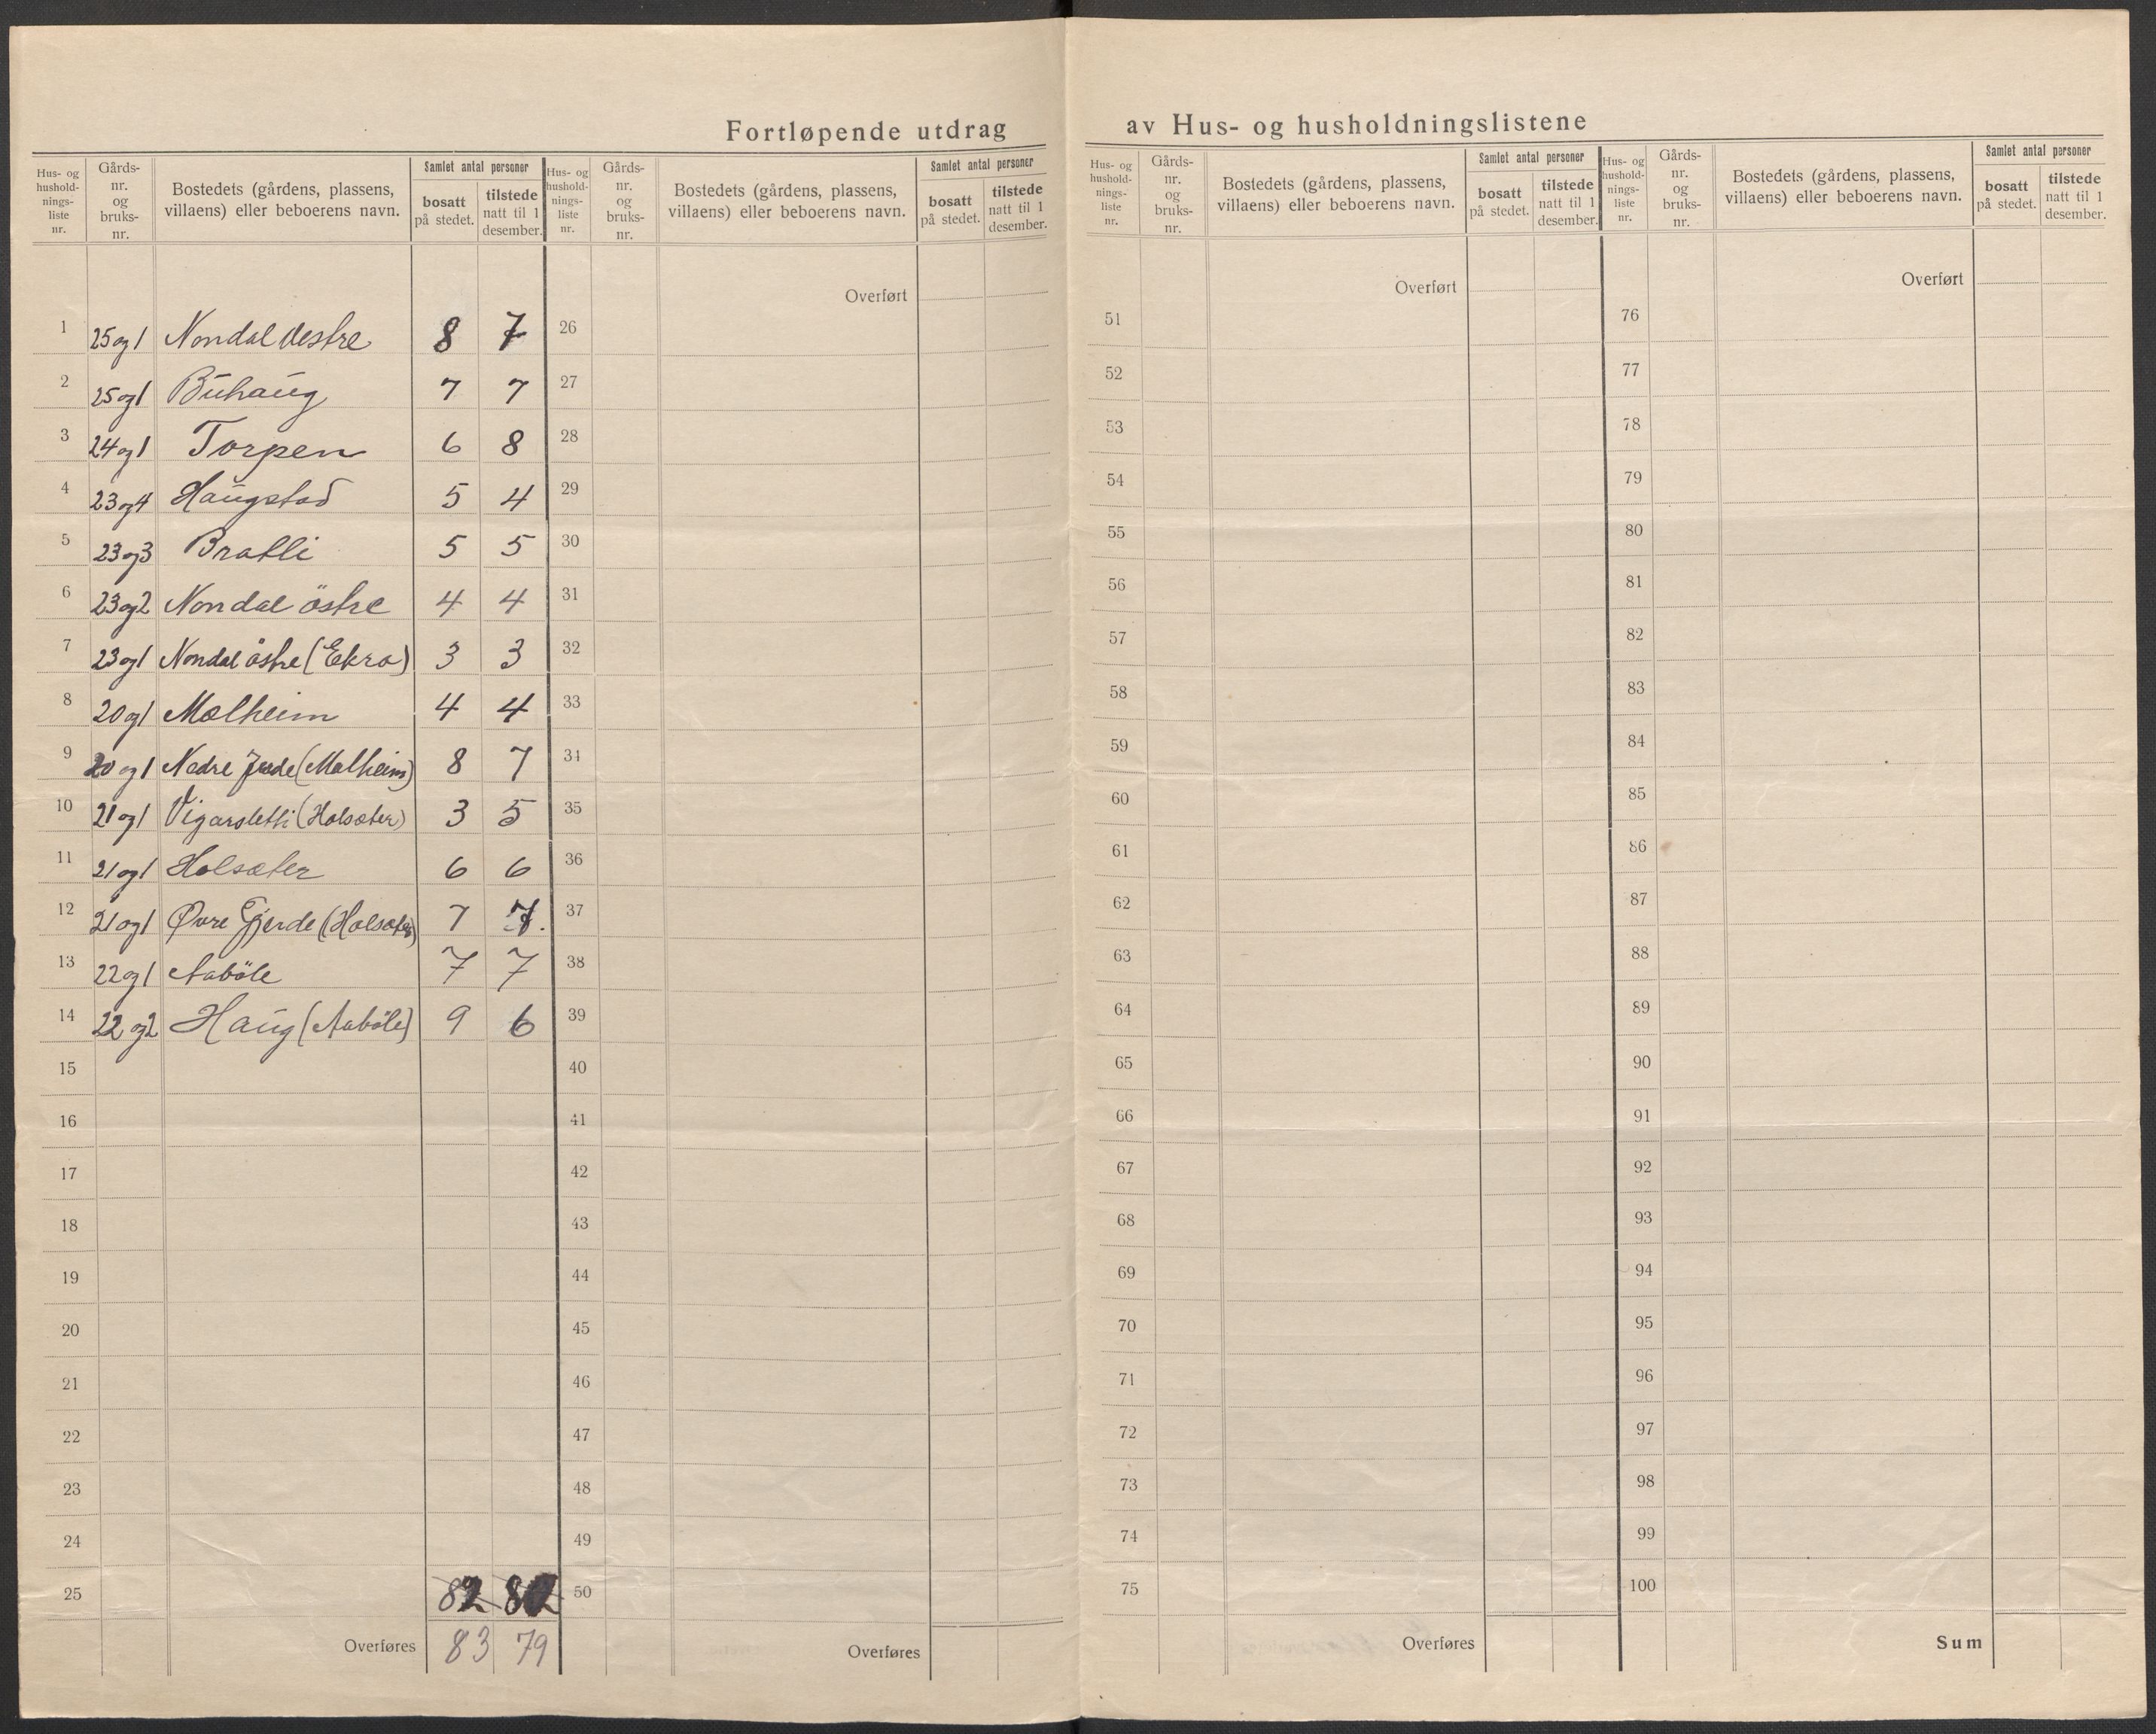 Fortløpende utdrag av Hus- og husholdningslistene
Hus- og hushold-nings-liste nr. Gårds-nr. og bruks-nr. Bostedets (gårdens, plassens, villaens) eller beboerens navn. Samlet antal personer bosatt på stedet. tilstede natt til 1 desember.
1 25 og 1 Nondal vestre 8 7
2 25 og 1 Buhaug 7 7
3 24 og 1 Torpen 6 8
4 23 og 4 Haugstad 5 4
5 23 og 3 Bratli 5 5
6 23 og 2 Nondal östre 4 4
7 23 og 1 Nondal östre (Ekra) 3 3
8 20 og 1 Molheim 4 4
9 20 og 1 Nedre (Molheim) 8 7
10 21 og 1 Vigarsletti (Holsæter) 3 5
11 21 og 1 Holsæter 6 6
12 21 og 1 Øvre Gjerde (Holsæter) 7 7.
13 22 og 1 Aaböle 7 7
14 22 og 2 Haug (Aaböle) 9 6
15
16
17
18
19
20
21
22
23
24
25 82 80
Overføres 83 79
Hus- og hushold-nings-liste nr. Gårds-nr. og bruks-nr. Bostedets (gårdens, plassens, villaens) eller beboerens navn. Samlet antal personer bosatt på stedet. tilstede natt til 1 desember.
Overført
26
27
28
29
30
31
32
33
34
35
36
37
38
39
40
41
42
43
44
45
46
47
48
49
50
Overføres
Hus- og hushold-nings-liste nr. Gårds-nr. og bruks-nr. Bostedets (gårdens, plassens, villaens) eller beboerens navn. Samlet antal personer bosatt på stedet. tilstede natt til 1 desember.
Overført
51
52
53
54
55
56
57
58
59
60
61
62
63
64
65
66
67
68
69
70
71
72
73
74
75
Overføres
Hus- og hushold-nings-liste nr. Gårds-nr. og bruks-nr. Bostedets (gårdens, plassens, villaens) eller beboerens navn. Samlet antal personer bosatt på stedet. tilstede natt til 1 desember.
Overført
76
77
78
79
80
81
82
83
84
85
86
87
88
89
90
91
92
93
94
95
96
97
98
99
100
Sum